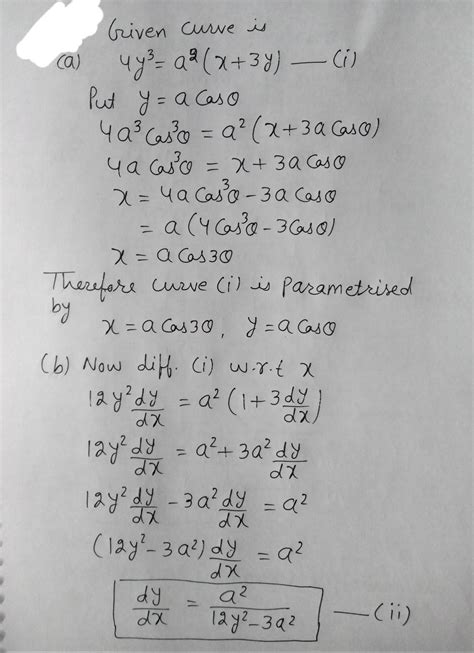 Given curve is
(a) 4y³ = a²(x+3y) — (i)
Put y = a Cosθ
4a³Cos³θ = a²(x+3a Cosθ)
4a Cos³θ = x+3a Cosθ
x = 4a Cos³θ - 3a Cosθ
= a(4Cos³θ - 3Cosθ)
x = a Cos3θ
Therefore curve (i) is Parametrised
by
x = a Cos3θ, y = a Cosθ
(b) Now diff. (i) w.r.t x
12y² dy/dx = a²(1+3 dy/dx)
12y² dy/dx = a²+3a² dy/dx
12y² dy/dx - 3a² dy/dx = a²
(12y²-3a²) dy/dx = a²
dy/dx = a²/12y²-3a² — (ii)